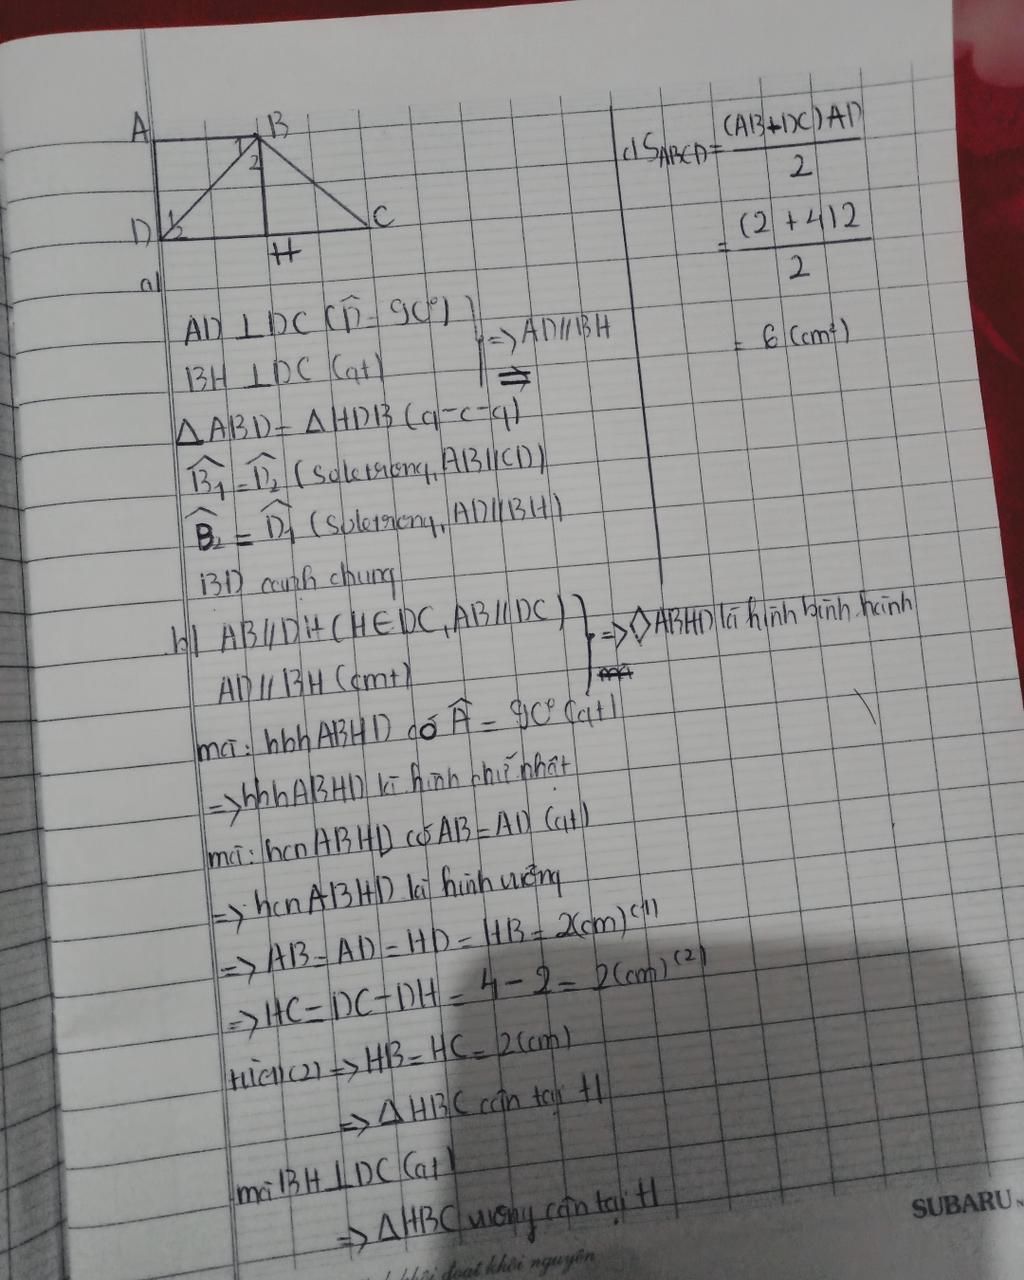 A B
1
2
D 1 2 C
H
a)
AD ⊥ DC (D̂ = 90°)
BH ⊥ DC (gt)
=> AD // BH
ΔABD = ΔHDB (g-c-g)
B̂1 = D̂2 (sole trong, AB // CD)
B̂2 = D̂1 (sole trong, AD // BH)
BD cạnh chung
b) AB // DH (H ∈ DC, AB // DC)
AD // BH (cmt)
=> ◇ABHD là hình bình hành
mà: hbh ABHD có Â = 90° (gt)
=> hbh ABHD là hình chữ nhật
mà: hcn ABHD có AB = AD (gt)
=> hcn ABHD là hình vuông
=> AB = AD = HD = HB = 2(cm) (1)
=> HC = DC - DH = 4 - 2 = 2(cm) (2)
từ (1) (2) => HB = HC = 2(cm)
=> ΔHBC cân tại H
mà BH ⊥ DC (gt)
=> ΔHBC vuông cân tại H
d) SABCD = (AB + DC) AD / 2
= (2 + 4) 2 / 2
= 6 (cm²)
SUBARU
đoạt khôi nguyên